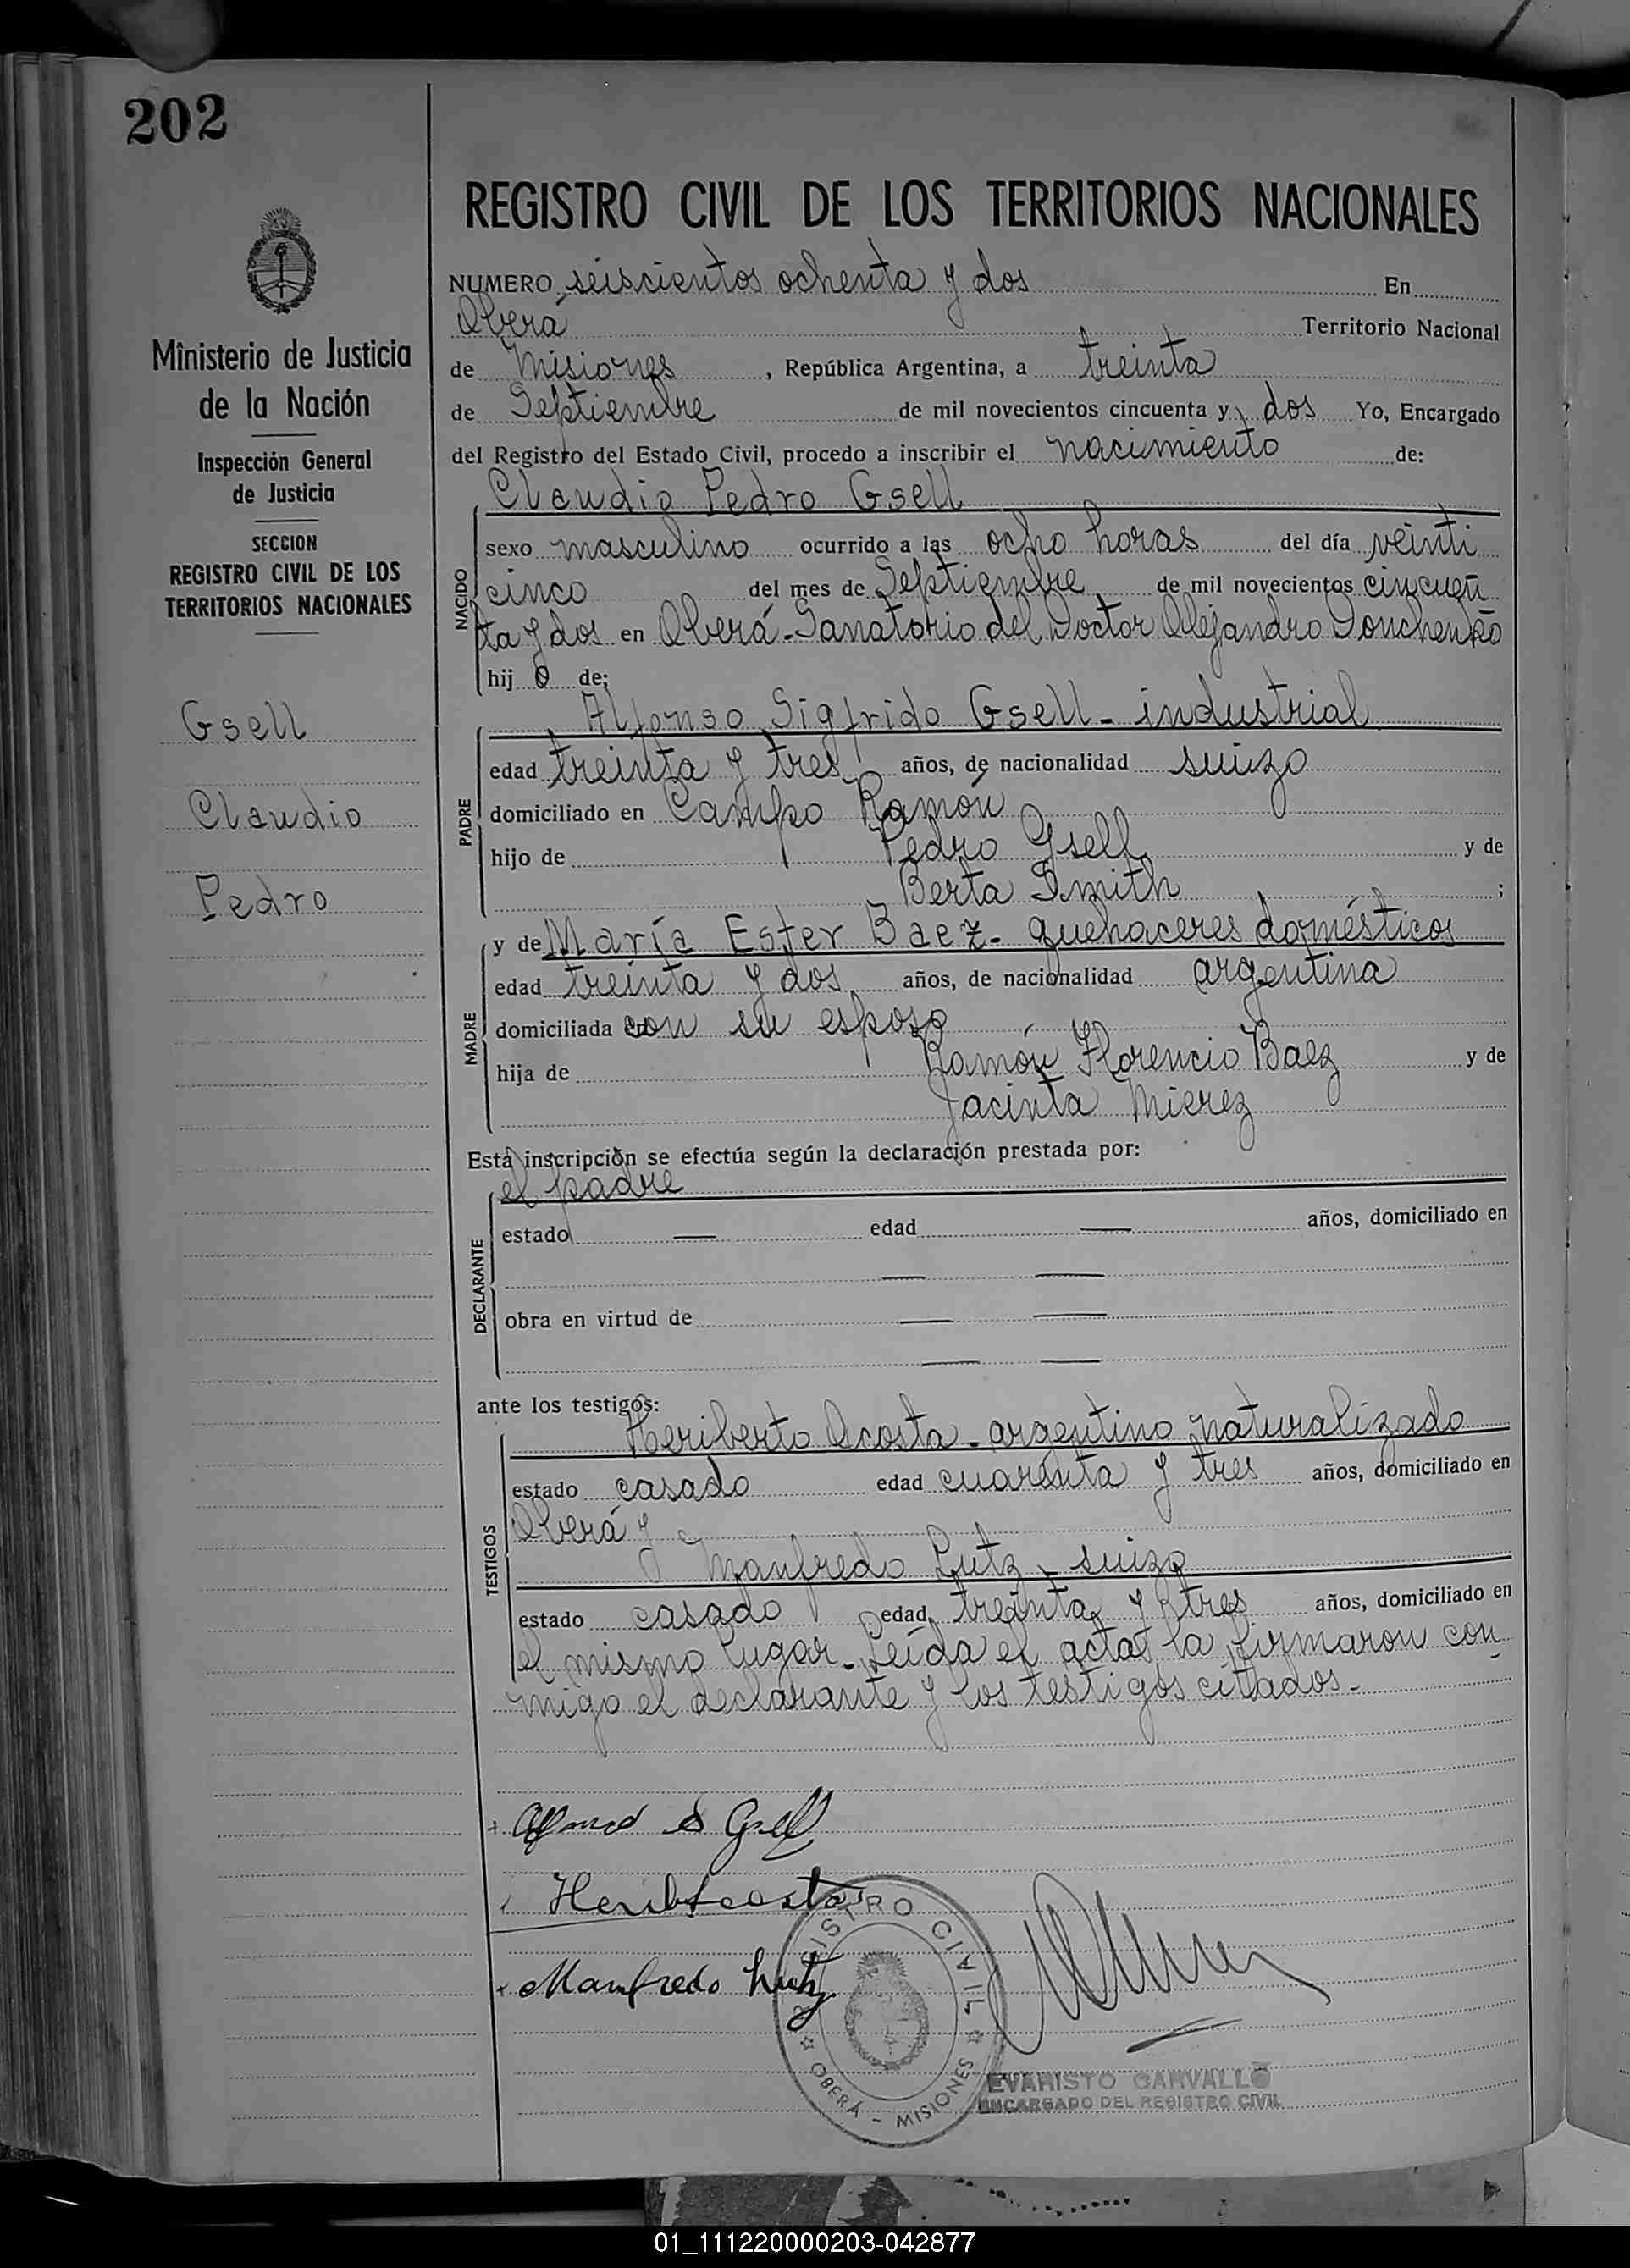 202
REGISTRO CIVIL DE LOS TERRITORIOS NACIONALES
Ministerio de Justicia
de la Nación
Inspección General
de Justicia
SECCION
REGISTRO CIVIL DE LOS
TERRITORIOS NACIONALES
Gsell
Claudio
Pedro
NUMERO seiscientos ochenta y dos En
Oberá Territorio Nacional
de Misiones, República Argentina, a treinta
de Septiembre de mil novecientos cincuenta y dos Yo, Encargado
del Registro del Estado Civil, procedo a inscribir el nacimiento de:
Claudio Pedro Gsell
NACIDO
sexo masculino ocurrido a las ocho horas del día veinti
cinco del mes de Septiembre de mil novecientos cincuen
ta y dos en Oberá - Sanatorio del Doctor Alejandro
hijo de;
Alfonso Sigfrido Gsell - industrial
PADRE
edad treinta y tres años, de nacionalidad suizo
domiciliado en Campo Ramón
hijo de Pedro Gsell y de
Berta Smith ;
y de María Ester Baez - quehaceres domésticos
MADRE
edad treinta y dos años, de nacionalidad argentina
domiciliada con su esposo
hija de Ramón Florencio Baez y de
Jacinta Mierez
Esta inscripción se efectúa según la declaración prestada por:
el padre
DECLARANTE
estado — edad — años, domiciliado en
— —
obra en virtud de — —
— —
ante los testigos:
Heriberto Acosta - argentino naturalizado
TESTIGOS
estado casado edad cuarenta y tres años, domiciliado en
Oberá y
Manfredo Lutz - suizo
estado casado edad treinta y tres años, domiciliado en
el mismo lugar. Leída el acta, la firmaron con
migo el declarante y los testigos citados.-
Alfonso S Gsell
Manfredo Lutz
REGISTRO CIVIL
OBERÁ - MISIONES
EVARISTO CARVALLO
ENCARGADO DEL REGISTRO CIVIL
01_111220000203-042877